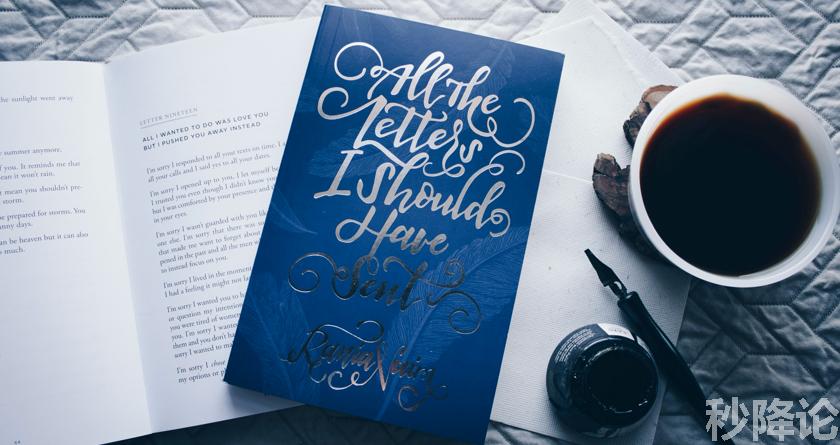 he sunlight went away
summer anymore.
f you. It reminds me that
ean it won't rain.
mean you shouldn't pre-
storms.
be prepared for storms. You
nny days.
an be heaven but it can also
much.
64
LETTER NINETEEN
ALL I WANTED TO DO WAS LOVE YOU
BUT I PUSHED YOU AWAY INSTEAD
I'm sorry I responded to all your texts on time. I
all your calls and I said yes to all your dates.
I'm sorry I opened up to you. I let myself
I trusted you even though I didn't know you
but I was comforted by your presence and th
in your eyes.
I'm sorry I wasn't guarded with you lik
one else. I'm sorry that there was so
that made me want to forget about
pened in the past and all the men w
to instead focus on you.
I'm sorry I lived in the moment
I had a feeling it might not las
I'm sorry I wanted you to
or question my intention
you were tired of women
them and you don't ha
sorry I wanted to ma
I'm sorry I chos
my options or p
All The
Letters
I Should
Have
Sent
Rania Naim
秒降论